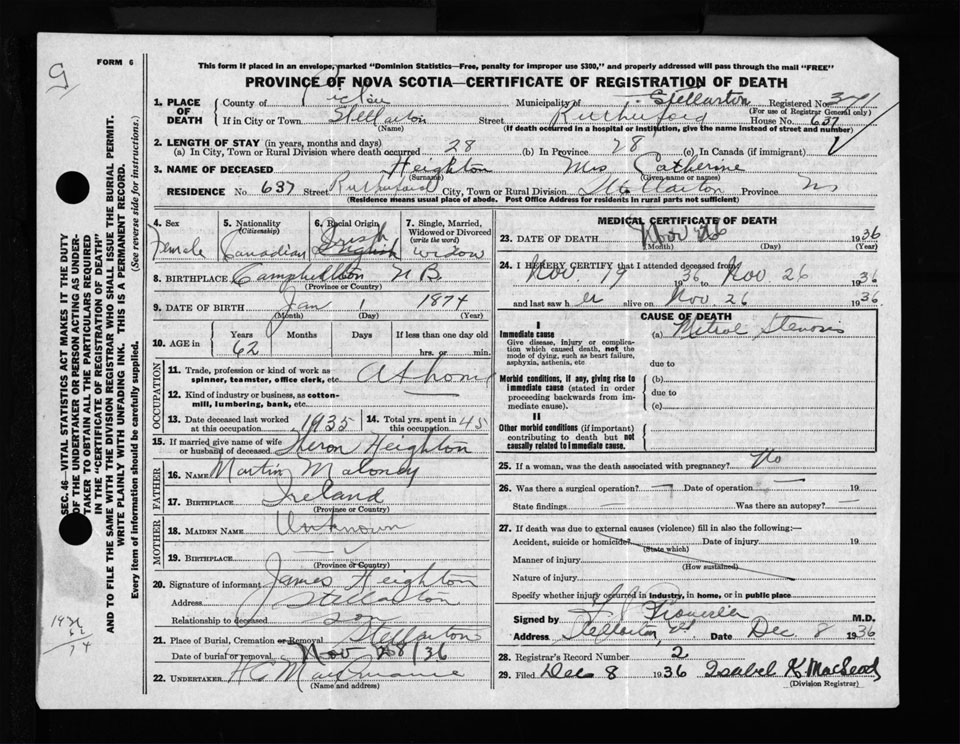 FORM 6
This form if placed in an envelope, marked "Dominion Statistics—Free, penalty for improper use $300," and properly addressed will pass through the mail "FREE"
PROVINCE OF NOVA SCOTIA—CERTIFICATE OF REGISTRATION OF DEATH
1. PLACE OF DEATH
County of Pictou Municipality of Stellarton Registered No.
(For use of Registrar General only)
If in City or Town Stellarton Street Rutherford House No. 637
(Name) (If death occurred in a hospital or institution, give the name instead of street and number)
2. LENGTH OF STAY (in years, months and days)
(a) In City, Town or Rural Division where death occurred 28 (b) In Province 28 (c) In Canada (if immigrant)
3. NAME OF DECEASED Heighton Mrs Catherine
(Surname) (Given name or names)
RESIDENCE No. 637 Street Rutherford City, Town or Rural Division Stellarton Province
(Residence means usual place of abode. Post Office Address for residents in rural parts not sufficient)
4. Sex 5. Nationality (Citizenship) 6. Racial Origin 7. Single, Married, Widowed or Divorced (write the word)
Female Canadian Irish English Widow
8. BIRTHPLACE Campbellton N B.
(Province or Country)
9. DATE OF BIRTH Jan 1 1874
(Month) (Day) (Year)
10. AGE in Years Months Days If less than one day old
62 hrs. or min.
OCCUPATION
11. Trade, profession or kind of work as spinner, teamster, office clerk, etc. At home
12. Kind of industry or business, as cotton-mill, lumbering, bank, etc.
13. Date deceased last worked at this occupation 1935 14. Total yrs. spent in this occupation 45
15. If married give name of wife or husband of deceased Heighton
FATHER
16. NAME Martin Maloney
17. BIRTHPLACE Ireland
MOTHER
18. MAIDEN NAME Unknown
19. BIRTHPLACE
(Province or Country)
20. Signature of informant James Heighton
Address Stellarton
Relationship to deceased son
21. Place of Burial, Cremation or Removal Stellarton
Date of burial or removal Nov 28/36
22. UNDERTAKER
(Name and address)
MEDICAL CERTIFICATE OF DEATH
23. DATE OF DEATH Nov 26 1936
(Month) (Day) (Year)
24. I HEREBY CERTIFY that I attended deceased from
Nov. 19 1936 to Nov 26 1936
and last saw h er alive on Nov. 26 1936.
CAUSE OF DEATH
I
Immediate cause (a) Mitral Stenosis
Give disease, injury or complication which caused death, not the mode of dying, such as heart failure, asphyxia, asthenia, etc
due to
Morbid conditions, if any, giving rise to immediate cause (stated in order proceeding backwards from immediate cause).
(b)
due to
(c)
II
Other morbid conditions (if important) contributing to death but not causally related to immediate cause.
25. If a woman, was the death associated with pregnancy? No
26. Was there a surgical operation? — Date of operation — 19
State findings — Was there an autopsy? —
27. If death was due to external causes (violence) fill in also the following:—
Accident, suicide or homicide? Date of injury 19
(State which)
Manner of injury
(How sustained)
Nature of injury
Specify whether injury occurred in industry, in home, or in public place
Signed by M.D.
Address Stellarton Date Dec 8 1936
28. Registrar's Record Number 2
29. Filed Dec 8 1936 Isabel K MacLeod
(Division Registrar)
SEC. 46—VITAL STATISTICS ACT MAKES IT THE DUTY
OF THE UNDERTAKER OR PERSON ACTING AS UNDER-
TAKER TO OBTAIN ALL THE PARTICULARS REQUIRED
IN THE "CERTIFICATE OF REGISTRATION OF DEATH"
AND TO FILE THE SAME WITH THE DIVISION REGISTRAR WHO SHALL ISSUE THE BURIAL PERMIT.
WRITE PLAINLY WITH UNFADING INK. THIS IS A PERMANENT RECORD.
Every item of information should be carefully supplied. (See reverse side for instructions.)